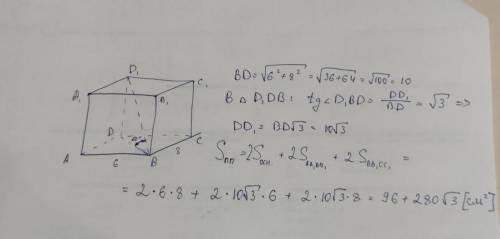 D₁
C₁
A₁
B₁
D
C
A
B
6
8
BD = √6² + 8² = √36+64 = √100 = 10
В △ D₁DB: tg∠D₁BD = DD₁/BD = √3 =>
DD₁ = BD√3 = 10√3
Sпп = 2Sосн + 2S + 2S =
= 2·6·8 + 2·10√3·6 + 2·10√3·8 = 96 + 280√3 [см²]